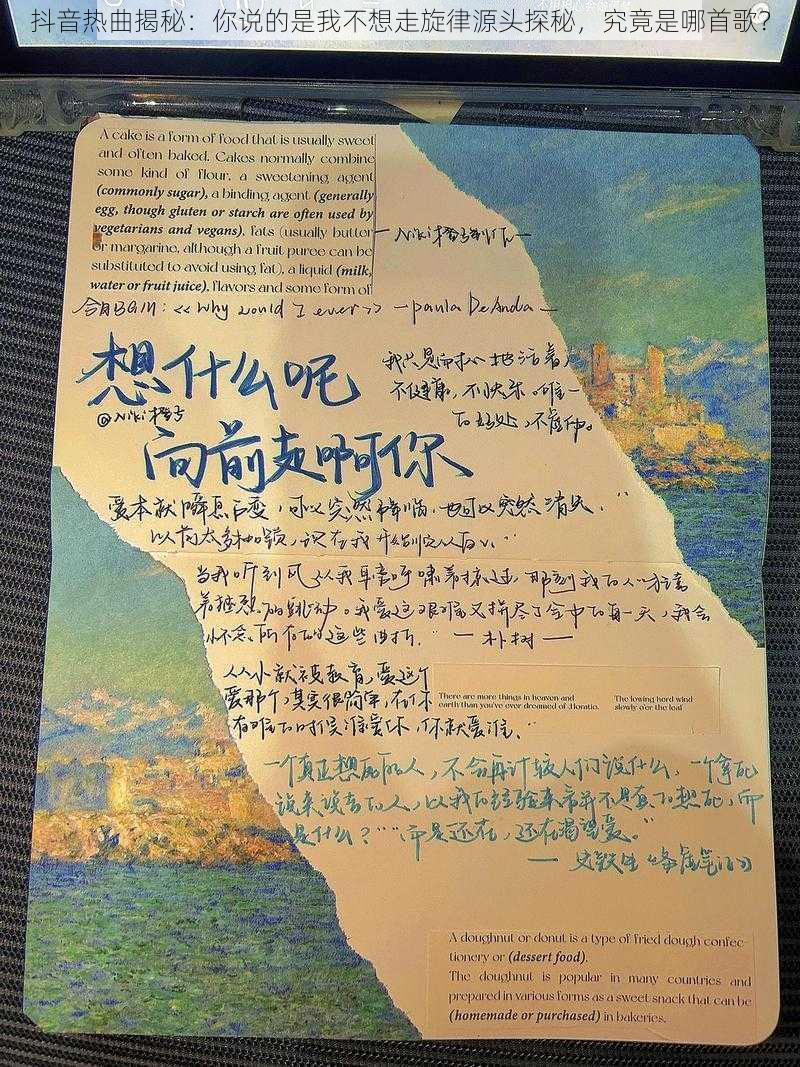 抖音热曲揭秘：你说的是我不想走旋律源头探秘，究竟是哪首歌？
A cake is a form of food that is usually sweet
and often baked. Cakes normally combine
some kind of flour, a sweetening agent
(commonly sugar), a binding agent (generally
egg, though gluten or starch are often used by
vegetarians and vegans), fats (usually butter
or margarine, although a fruit puree can be
substituted to avoid using fat), a liquid (milk,
water or fruit juice), flavors and some form of
—Niki橙子制作—
今日BGM：<<Why would I ever>> —paula DeAnda—
想什么呢
@Niki橙子
向前走啊你
我只是 地活着，
不健康，不快乐，唯一
的好处，不虚伪。
爱本就瞬息万变，可以突然降临，也可以突然消失．"
以前太多 ，现在我开始
当我听到风从我耳旁呼啸着掠过，那刻我的心
着 的跳动。我爱这艰难又拼尽了全力的每一天，我会
怀念所有的这些曲折．" — 朴树 —
从小就被教育，爱这个
爱那个，其实很简单，在你
有难的时候谁爱你，你就爱谁．"
There are more things in heaven and
earth than you've ever dreamed of ,Horatio.
The lowing herd wind
slowly o'er the leaf
一个真正想死的人，不会再计较人们说什么，一个拿死
说来说去的人，以我的经验来看并不是真的想死，而
是什么？""而是还在，还在渴望爱。"
— 史铁生《务虚笔记》
A doughnut or donut is a type of fried dough confec-
tionery or (dessert food).
The doughnut is popular in many countries and
prepared in various forms as a sweet snack that can be
(homemade or purchased) in bakeries.